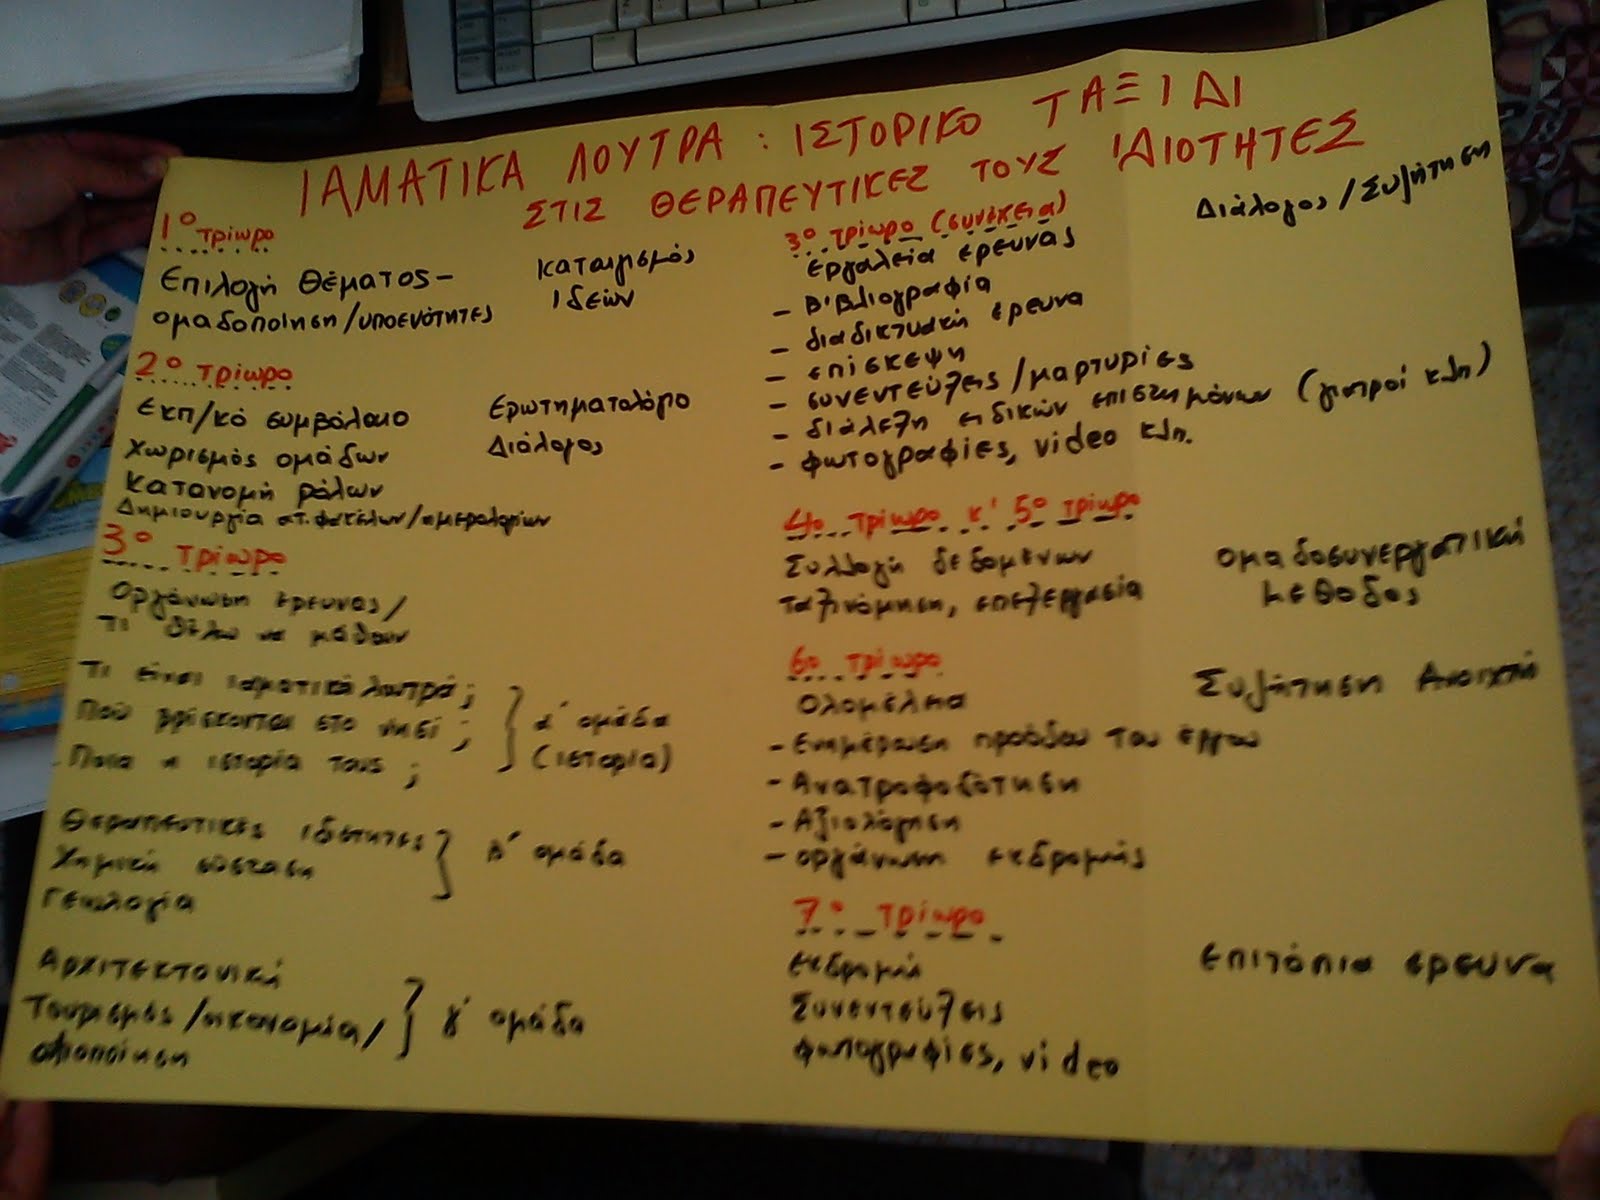 ΙΑΜΑΤΙΚΑ ΛΟΥΤΡΑ : ΙΣΤΟΡΙΚΟ ΤΑΞΙΔΙ
ΣΤΙΣ ΘΕΡΑΠΕΥΤΙΚΕΣ ΤΟΥΣ ΙΔΙΟΤΗΤΕΣ
1ο τρίωρο
Επιλογή θέματος – καταιγισμός
ομαδοποίηση/υποενότητες ιδεών
2ο τρίωρο
Εκπ/κό συμβόλαιο Ερωτηματολόγιο
Χωρισμός ομάδων Διάλογος
Κατανομή ρόλων
Δημιουργία ατ. φακέλων/ημερολογίων
3ο τρίωρο
Οργάνωση έρευνας/
Τι θέλω να μάθουν
Τι είναι ιαματικά λουτρά;
Πού βρίσκονται στο νησί; } α' ομάδα
- Ποια η ιστορία τους; (ιστορία)
Θεραπευτικές ιδιότητες
Χημική σύσταση } β' ομάδα
Γεωλογία
Αρχιτεκτονική
Τουρισμός/οικονομία/ } γ' ομάδα
αξιοποίηση
3ο τρίωρο (συνέχεια) Διάλογος/Συζήτηση
εργαλεία έρευνας
- Βιβλιογραφία
- διαδικτυακή έρευνα
- επίσκεψη
- συνεντεύξεις/μαρτυρίες
- διάλεξη ειδικών επιστημόνων (γιατροί κλπ)
- φωτογραφίες, video κλπ.
4ο τρίωρο κ' 5ο τρίωρο
Συλλογή δεδομένων Ομαδοσυνεργατική
ταξινόμηση, επεξεργασία μέθοδος
6ο τρίωρο
Ολομέλεια Συζήτηση Ανοιχτή
- Ενημέρωση προόδου του έργου
- Ανατροφοδότηση
- Αξιολόγηση
- οργάνωση εκδρομής
7ο τρίωρο
εκδρομή επιτόπια έρευνα
Συνεντεύξεις
φωτογραφίες, video